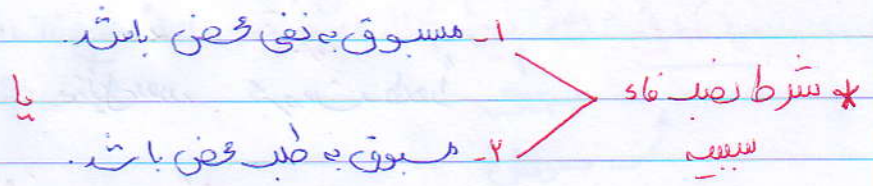 * شرط نصب فاء سببیه
۱- مسبوق به نفی محض باشد.
یا
۲- مسبوق به طلب محض باشد.